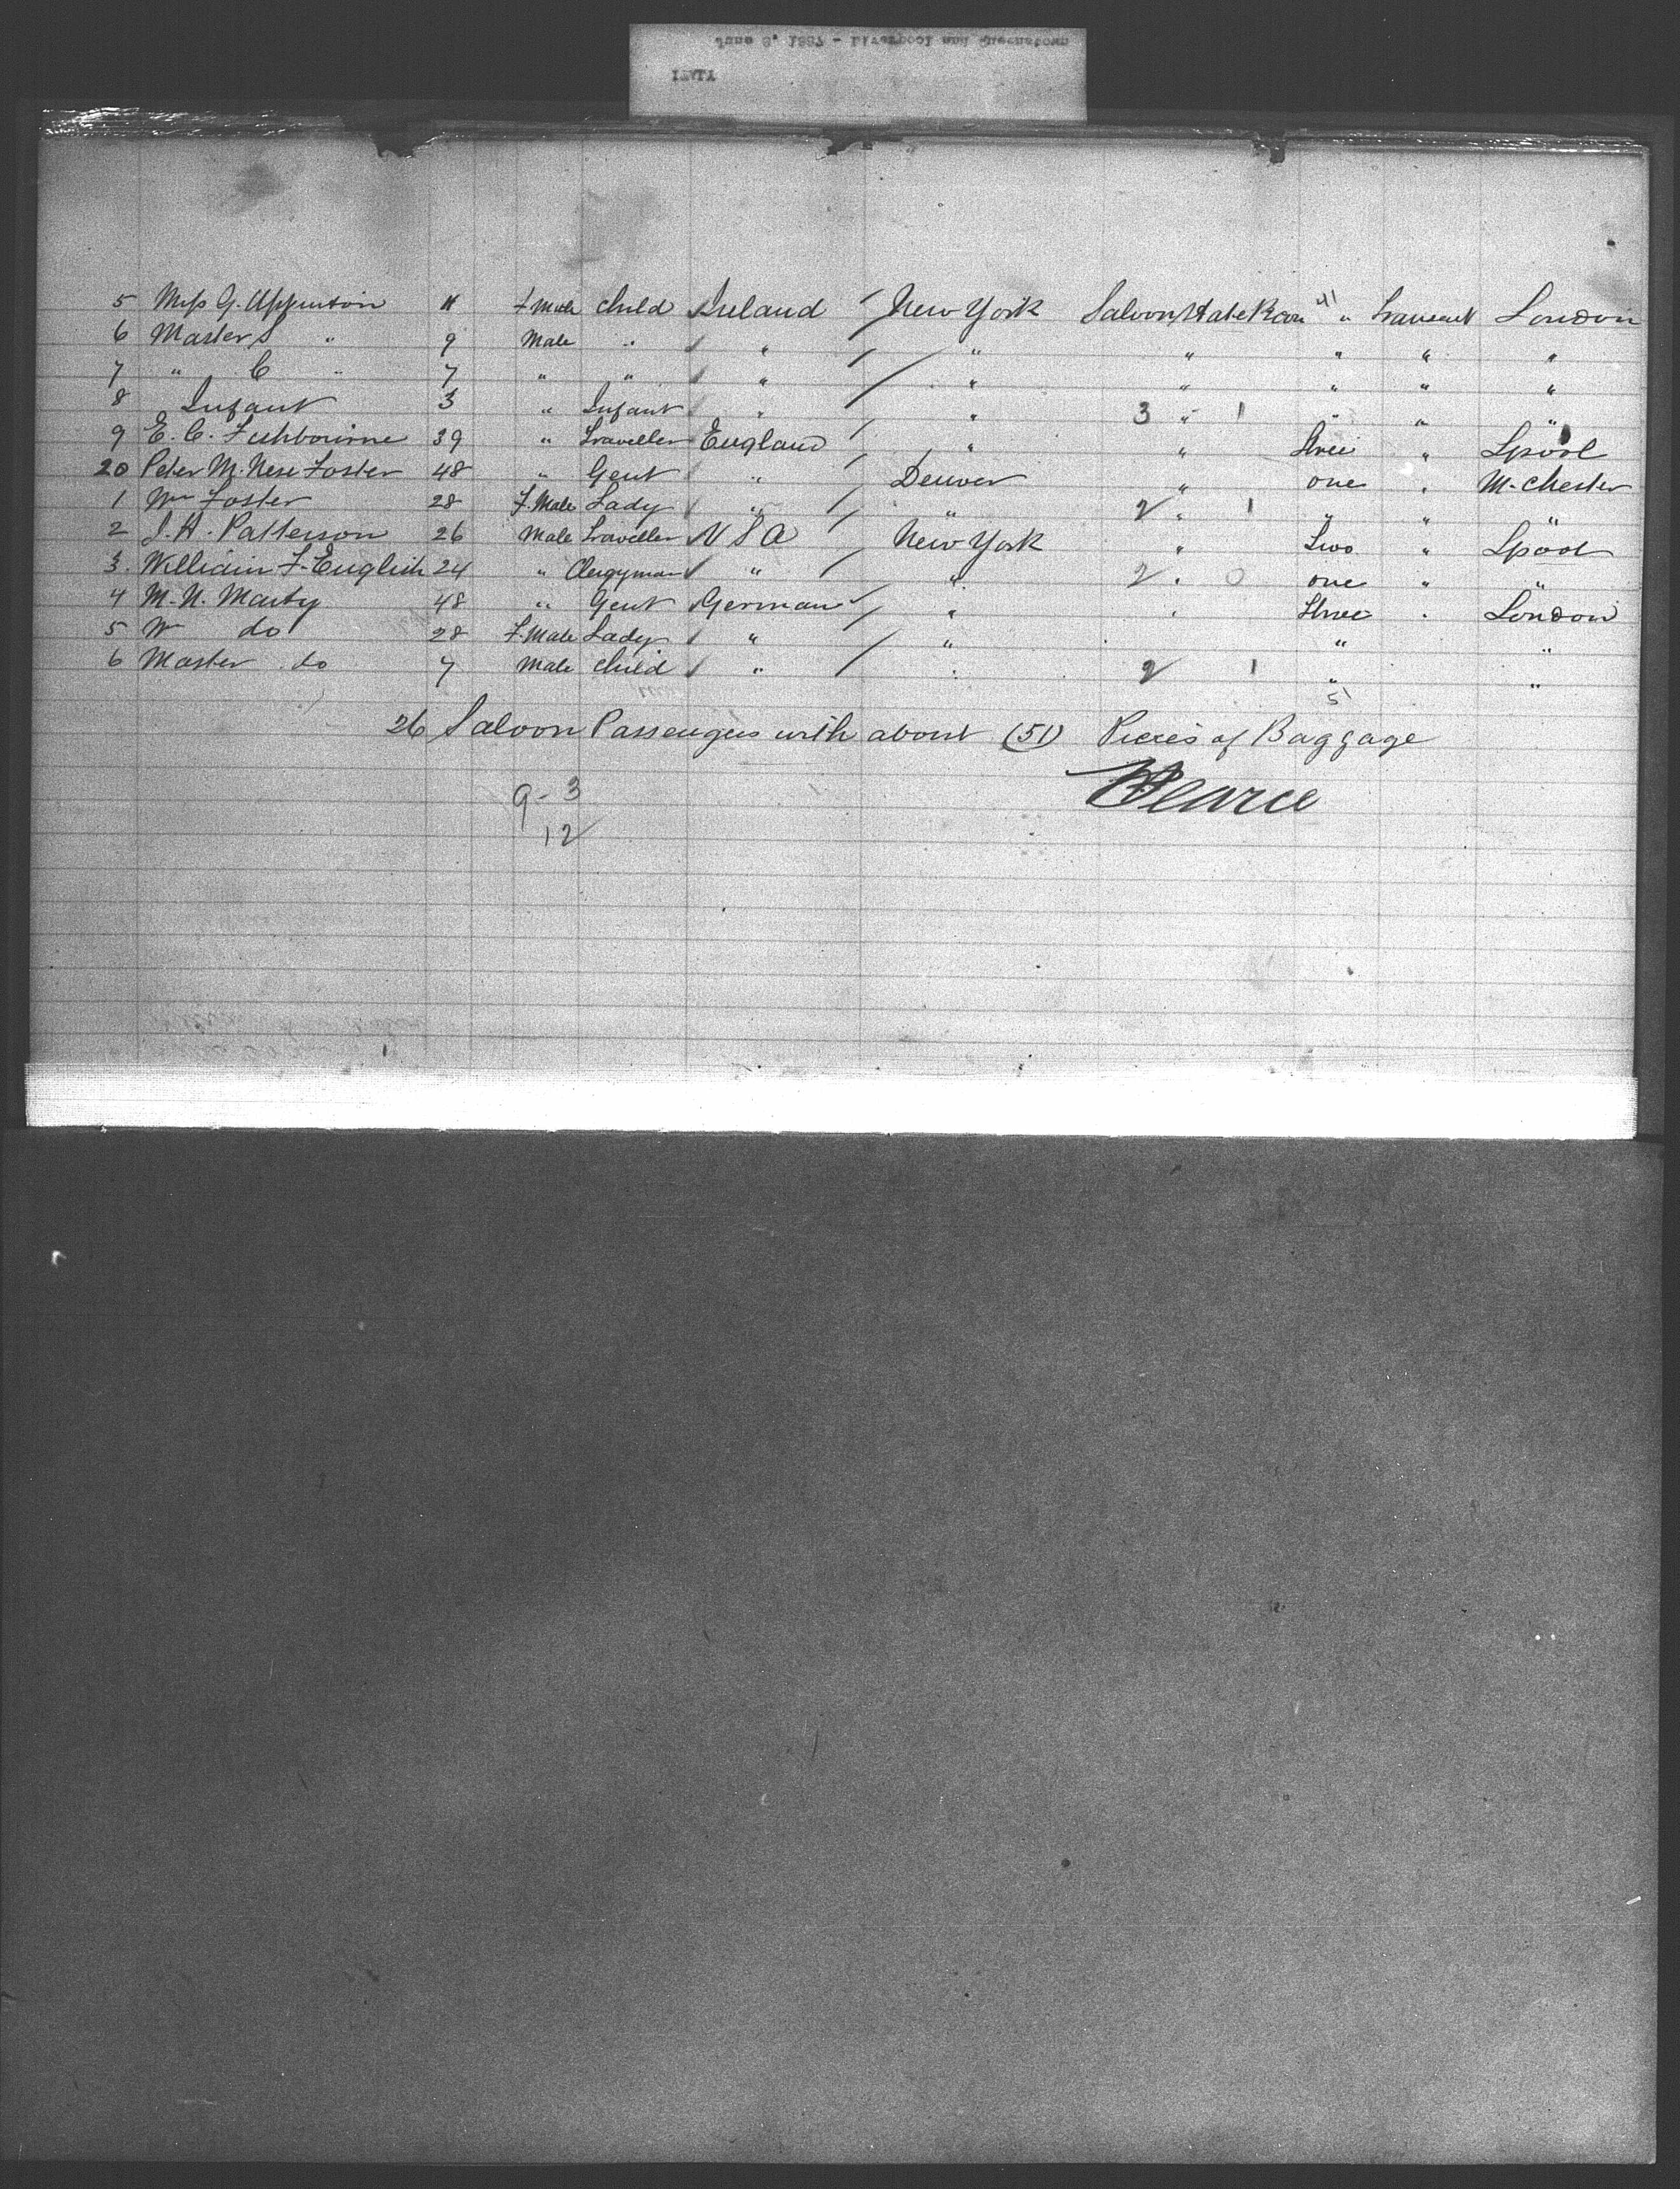 June 8, 1887 - Liverpool and Queenstown
ITALY
5 Miss G. Appleton 11 F Male Child Ireland / New York Saloon State Room 41 " Transent London
6 Master S " 9 Male " " / " " " " "
7 " C " 7 " " " / " " " " "
8 Infant 3 " Infant " / " 3 " 1 " " "
9 E. C. Fishbourne 39 " Traveller England / " " three " Lpool
20 Peter M. Nese Foster 48 " Gent " / Denver " one " M-chester
1 Mrs Foster 28 F. Male Lady " / " 2 " 1 " " "
2 J. H. Patterson 26 Male Traveller U S A / New York " Two " Lpool
3. William F. English 24 " Clergyman " / " 2 " 0 one " "
4 M. N. Marty 48 " Gent German / " " three " London
5 Mrs do 28 F. Male Lady " / " " "
6 Master do 7 Male Child " / " 2 1 " "
51
26 Saloon Passengers with about (51) Pieces of Baggage
Pearce
9 - 3
12